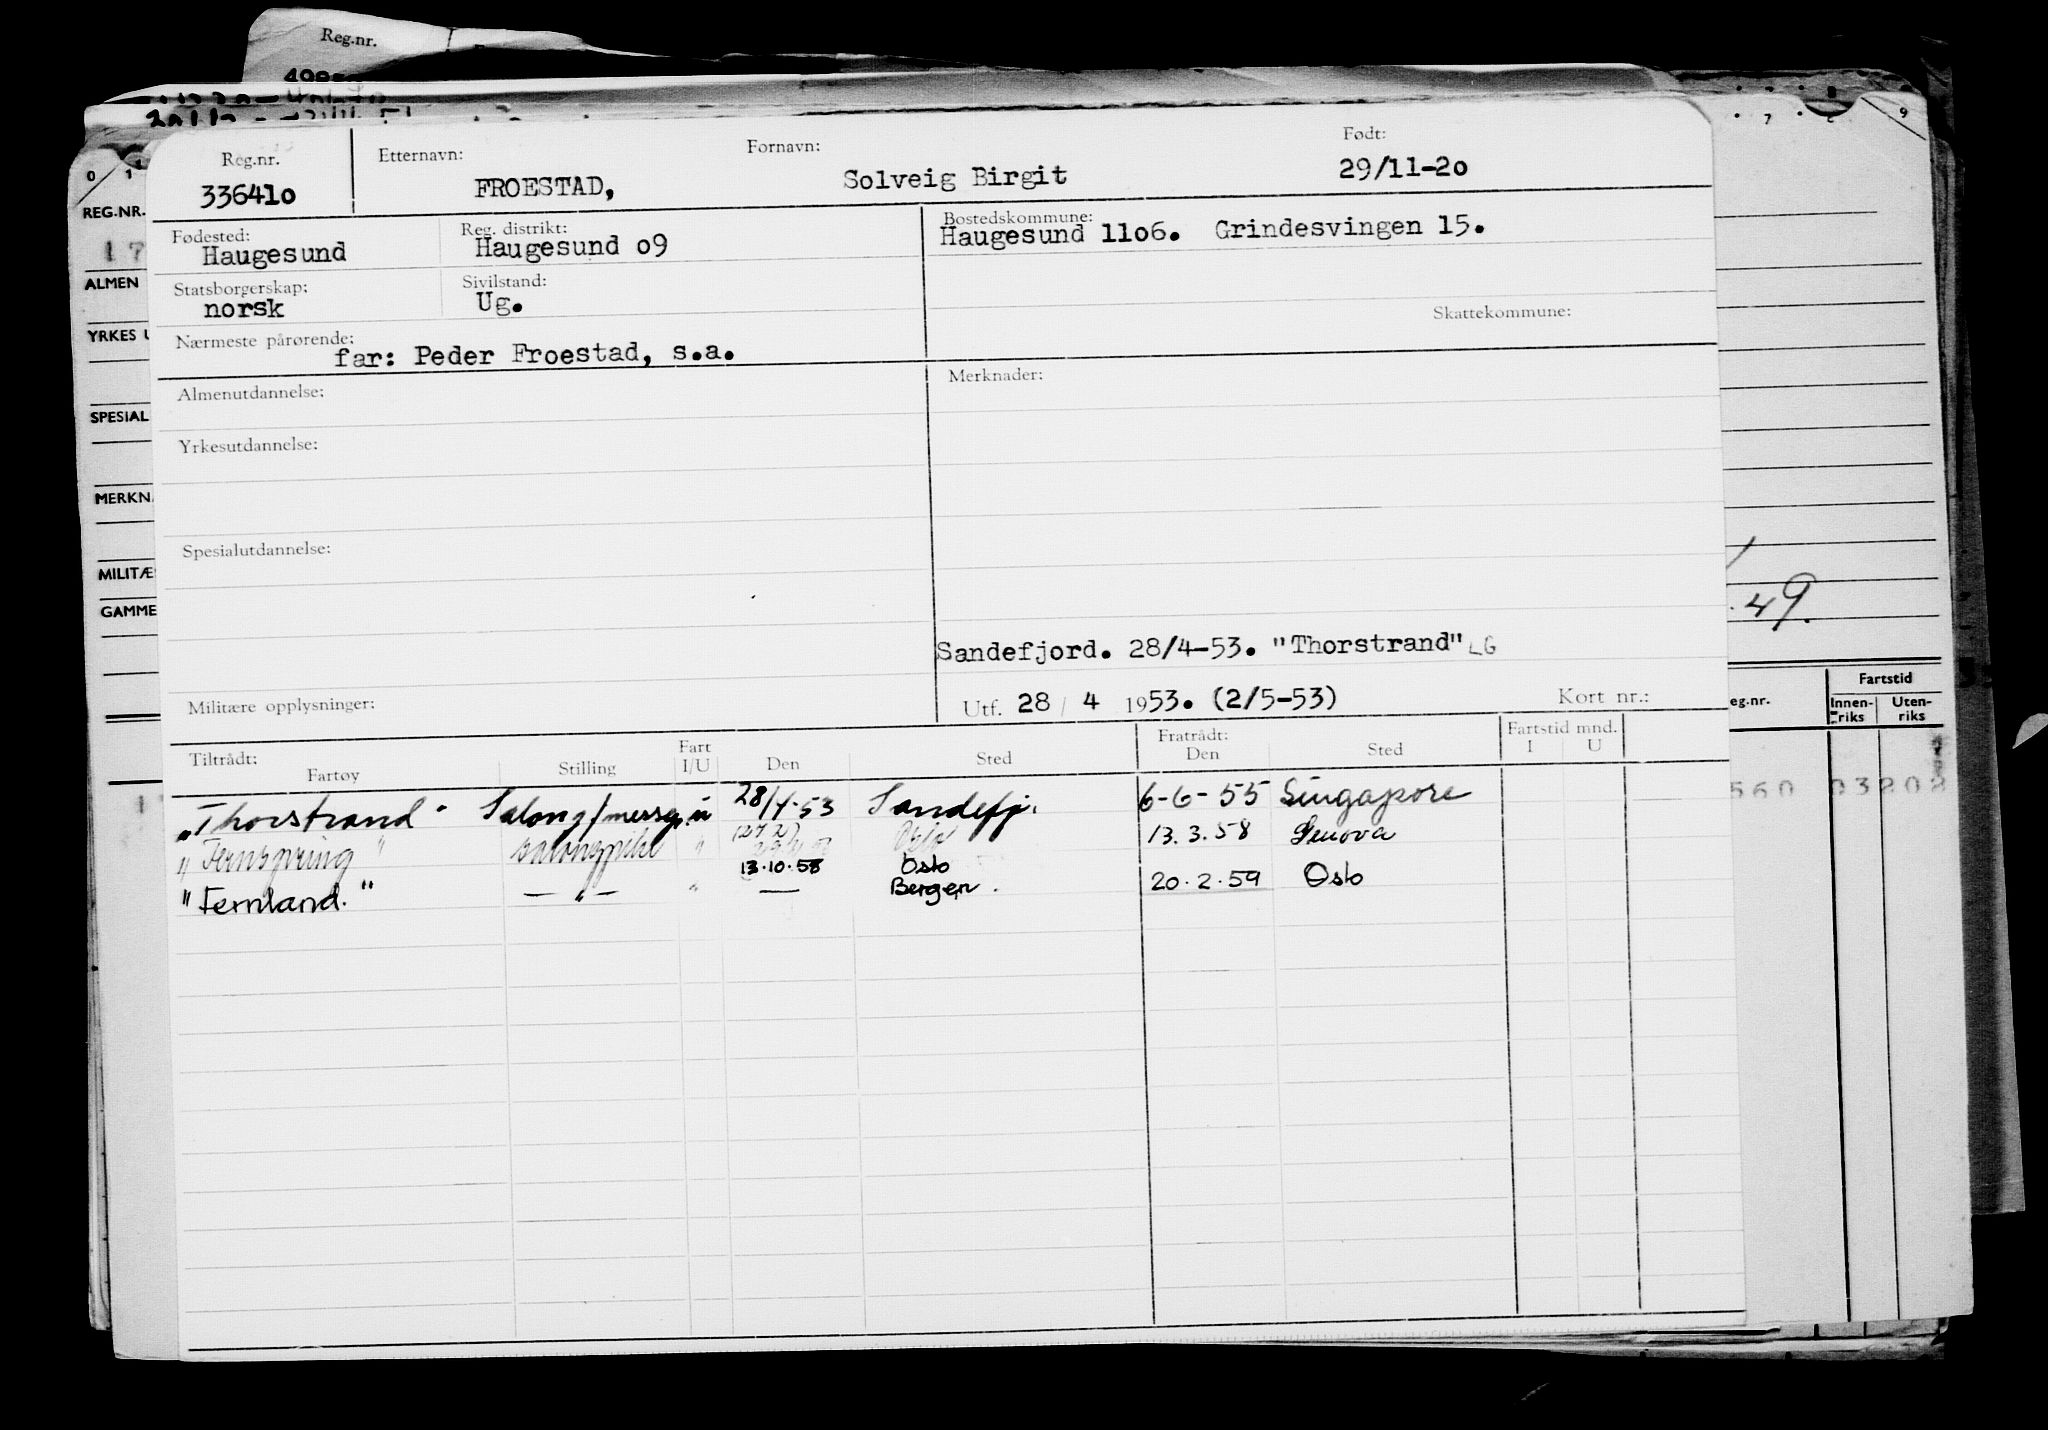 Reg.nr.
Reg.nr. Etternavn: Fornavn: Født:
336410 FROESTAD, Solveig Birgit 29/11-20
Fødested: Reg. distrikt: Bostedskommune:
Haugesund Haugesund 09 Haugesund 1106. Grindesvingen 15.
Statsborgerskap: Sivilstand:
norsk Ug.
Skattekommune:
Nærmeste pårørende:
far: Peder Froestad, s.a.
Almenutdannelse: Merknader:
Yrkesutdannelse:
Spesialutdannelse:
Sandefjord. 28/4-53. "Thorstrand" LG
Militære opplysninger: Utf. 28 / 4 1953. (2/5-53) Kort nr.:
Tiltrådt: Fart Fratrådt: Fartstid mnd.
Fartøy Stilling I/U Den Sted Den Sted I U
"Thorstrand" Salong/messep. u 28/4-53 Sandefj. 6-6-55 Singapore
"Fernspring" salongpike " Oslo 13.3.58 Genova
13.10.58 Oslo
"Fernland." — " — " — Bergen. 20.2.59 Oslo
REG.NR.
17
ALMEN
YRKES U
SPESIAL
MERKN
MILITÆ
GAMME
49.
eg.nr. Fartstid
Innenriks Utenriks
560 03202